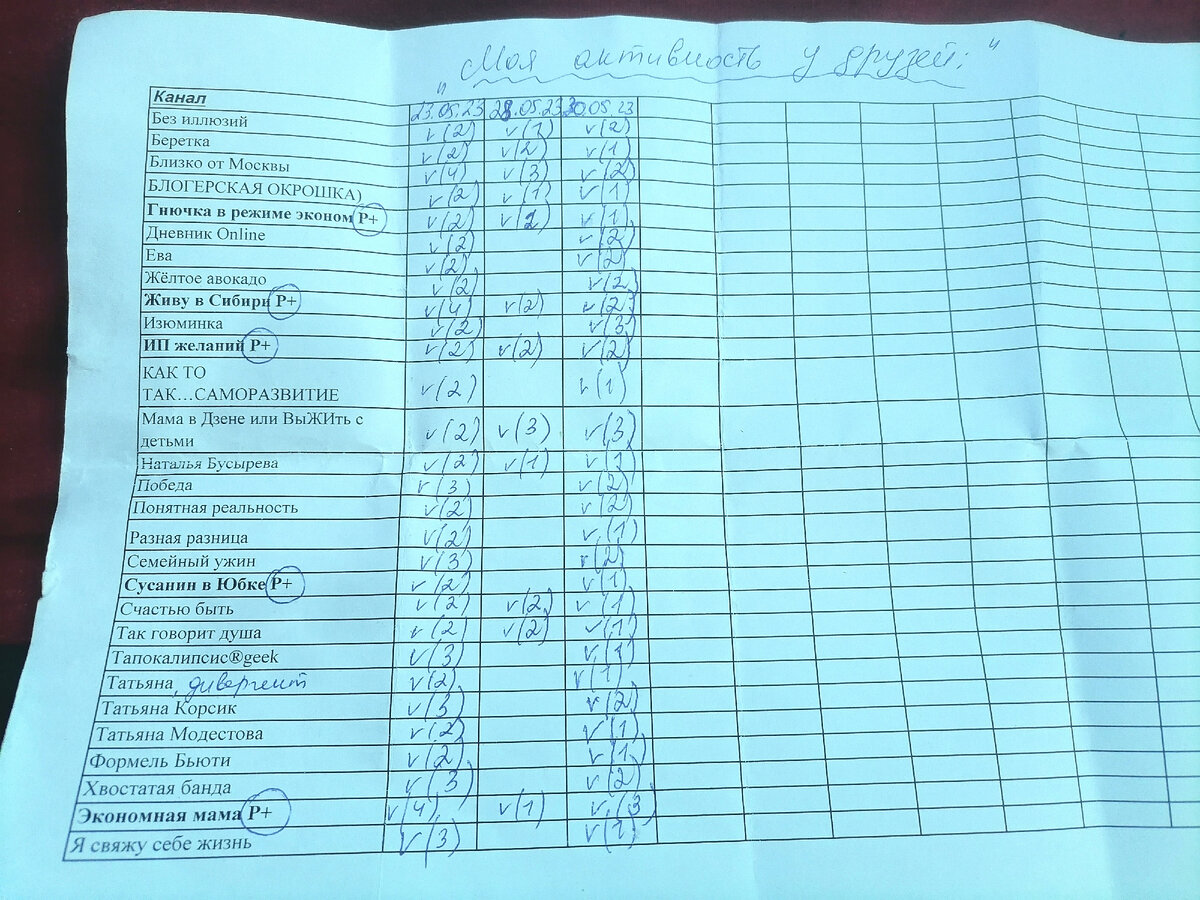 "Моя активность у друзей:"
Канал 23.05.23 28.05.23 30.05.23
Без иллюзий v(2) v(1) v(2)
Беретка v(2) v(2) v(1)
Близко от Москвы v(4) v(3) v(2)
БЛОГЕРСКАЯ ОКРОШКА) v(2) v(1) v(1)
Гнючка в режиме эконом Р+ v(2) v(2) v(1)
Дневник Online v(2) v(2)
Ева v(2) v(2)
Жёлтое авокадо v(2) v(2)
Живу в Сибири Р+ v(4) v(2) v(2)
Изюминка v(2) v(3)
ИП желаний Р+ v(2) v(2) v(2)
КАК ТО
ТАК…САМОРАЗВИТИЕ v(2) v(1)
Мама в Дзене или ВыЖИть с
детьми v(2) v(3) v(3)
Наталья Бусырева v(2) v(1) v(1)
Победа v(3) v(2)
Понятная реальность v(2) v(2)
Разная разница v(2) v(1)
Семейный ужин v(3) v(2)
Сусанин в Юбке Р+ v(2) v(1)
Счастью быть v(2) v(2) v(1)
Так говорит душа v(2) v(2) v(1)
Тапокалипсис®geek v(3) v(1)
Татьяна, дивергент v(2) v(1)
Татьяна Корсик v(3) v(2)
Татьяна Модестова v(2) v(1)
Формель Бьюти v(2) v(1)
Хвостатая банда v(3) v(2)
Экономная мама Р+ v(4) v(1) v(3
Я свяжу себе жизнь v(3) v(1)